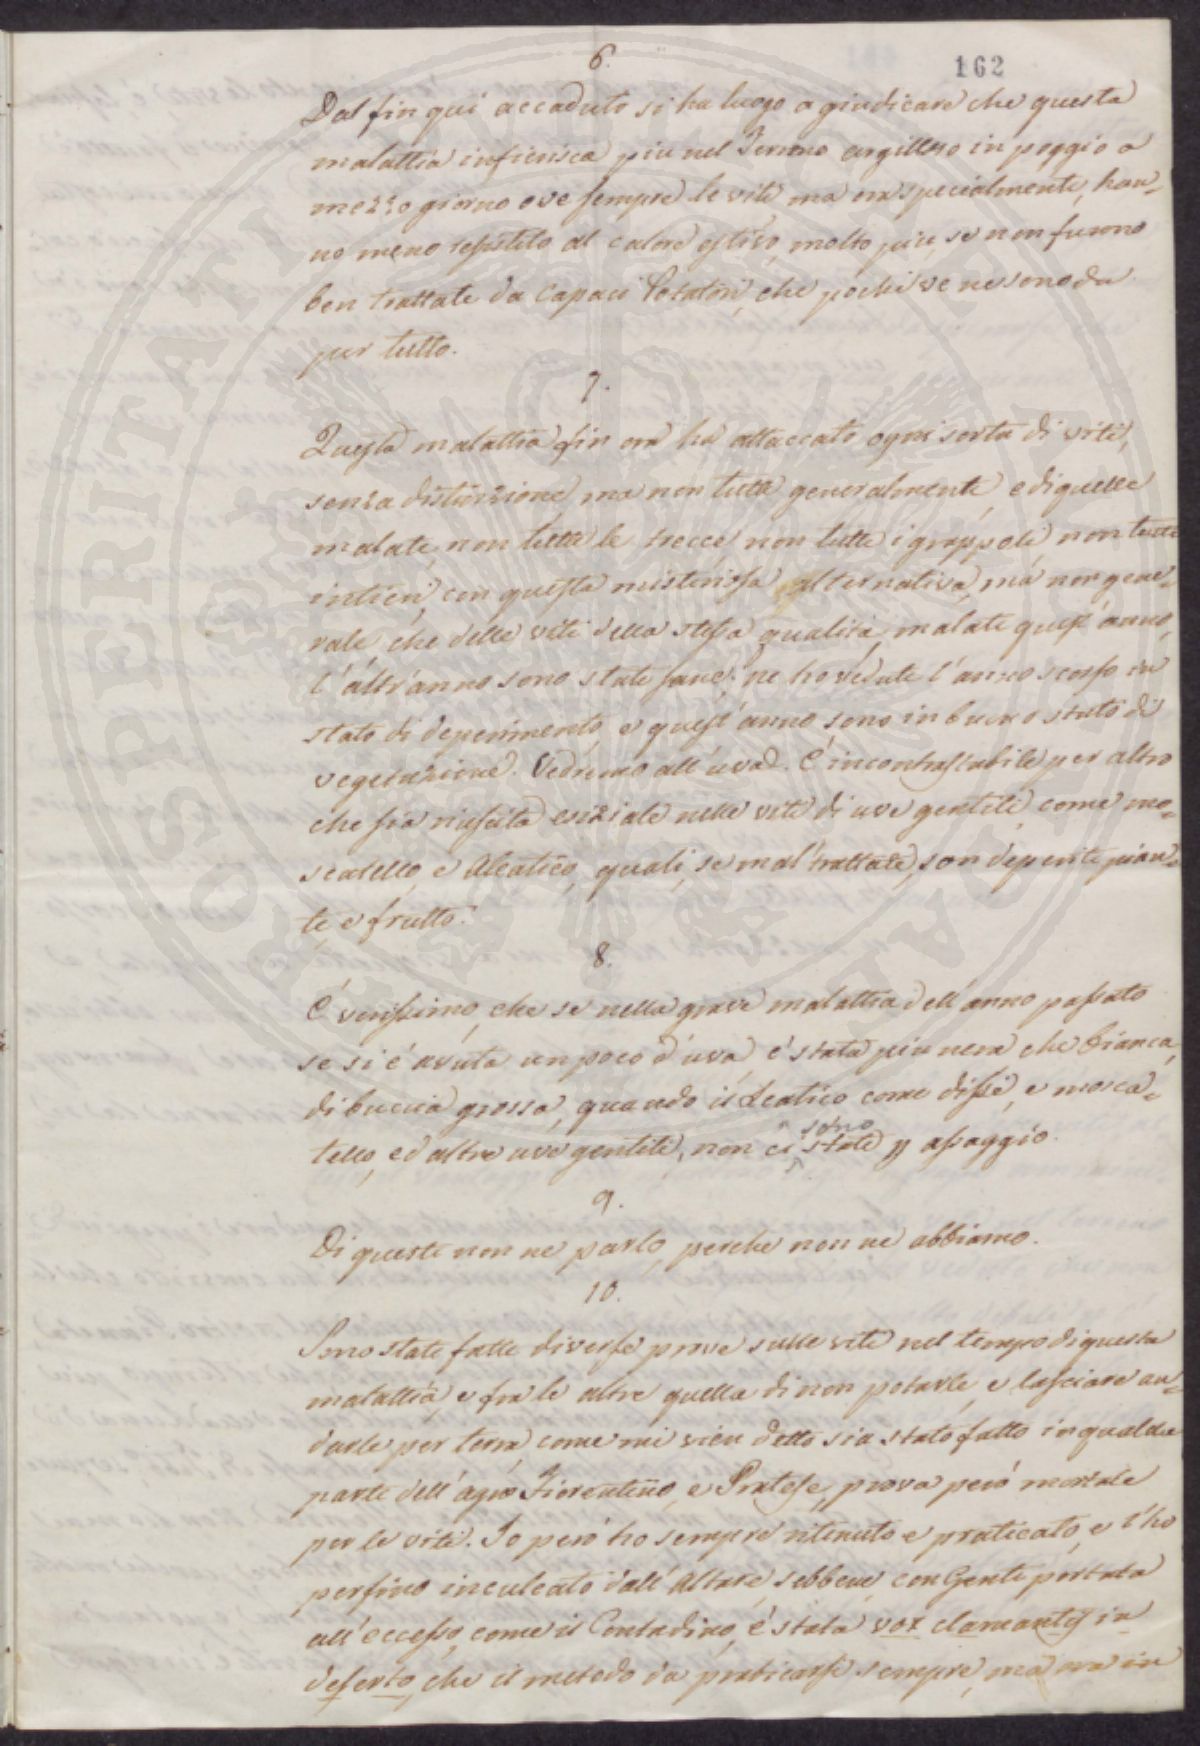 162
6.
Dal fin qui accaduto si ha luogo a giudicare che questa
malattia infierisca piu nel Terreno argilloso in poggio a
mezzo giorno ove sempre le viti ma ora specialmente, han=
no meno resistito al calore estivo, molto piu, se non furono
ben trattate da capaci Potatori, che pochi ve ne sono da
per tutto.
7.
Questa malattia fin ora ha attaccato ogni sorta di viti,
senza distinzione, ma non tutte generalmente, e di quelle
malate, non tutte le trecce non tutti i grappoli, non tutti
intieri, con questa misteriosa alternativa, ma non gene=
rale che delle viti della stessa qualità, malate quest'anno,
l'altr'anno sono state sane; ne ho vedute l'anno scorso in
stato di deperimento, e quest'anno sono in buono stato di
vegetazione. Vedremo all'uva. È incontrastabile per altro
che sia riuscita esiziale nelle viti di uve gentili, come mo=
scatello, e Aleatico, quali, se mal trattate, son deperite pian=
te e frutto.
8.
È verissimo, che se nella grave malattia dell'anno passato
se si è avuta un poco d'uva, è stata piu nera che bianca,
di buccia grossa, quando il Leatico come dissi, e mosca=
tello, ed altre uve gentili, non ci sono state p assaggio.
9.
Di queste non ne parlo, perche non ne abbiamo.
10.
Sono state fatte diverse prove sulle viti nel tempo di questa
malattia, e fra le altre quella di non potarle, e lasciare an=
darle per terra, come mi vien detto sia stato fatto in qualche
parte dell'agro Fiorentino, e Pratese, prova però mortale
per le viti. Io però ho sempre ritenuto e praticato, e l'ho
perfino inculcato dall'Altare, sebbene con Gente portata
all'eccesso, come il Contadino, è stata vox clamantis in
deserto, che il metodo da praticarsi sempre, ma ora in